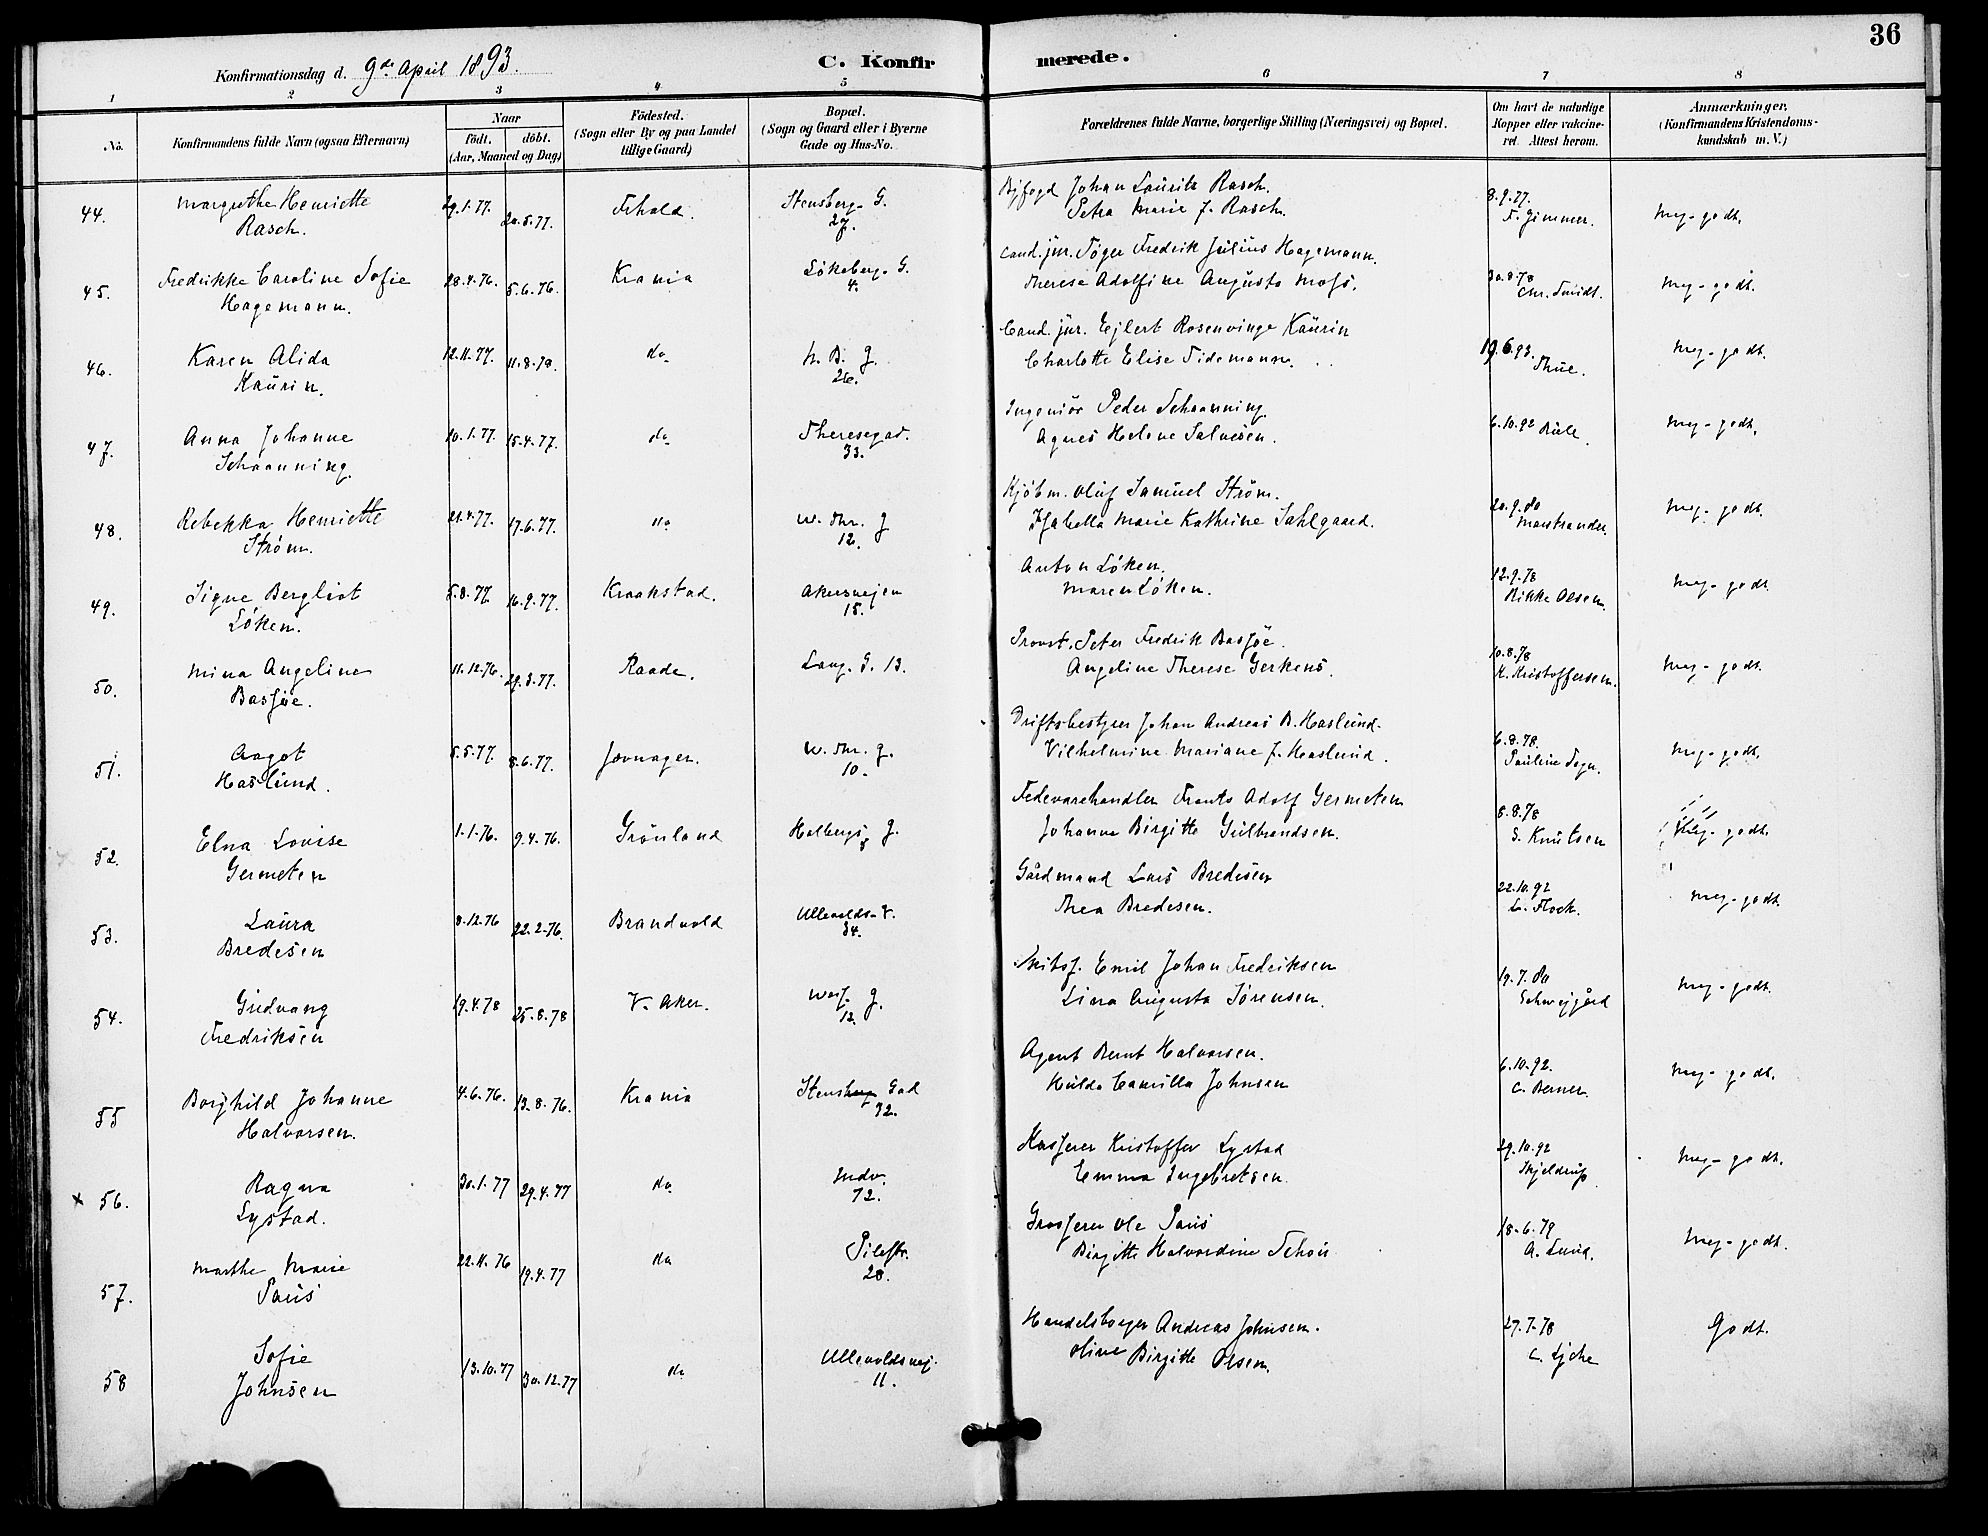 36
Konfirmationsdag d. 9de April 1893.
C. Konfirmerede.
1 2 3 4 5 6 7 8
No.
Konfirmandens fulde Navn (ogsaa Efternavn)
Naar
födt. döbt.
(Aar, Maaned og Dag)
Födested.
(Sogn eller By og paa Landet
tillige Gaard)
Bopæl.
(Sogn og Gaard eller i Byerne
Gade og Hus-No.
Forældrenes fulde Navne, borgerlige Stilling (Næringsvei) og Bopæl.
Om havt de naturlige
Kopper eller vakcine-
ret. Attest herom.
Anmærkninger.
(Konfirmandens Kristendoms-
kundskab m. V.)
44. Margrethe Henriette 29.1.77. 20.5.77. Frhald. Stensberg. G. Byfogd Johan Lauritz Rasch. 8.9.77. Meg. godt.
Rasch. 27. Petra Marie J. Rasch. F. Gimmer.
45. Fredrikke Caroline Sofie 28.4.76. 5.6.76. Krania Lökeberg. G. Cand. jur. Töger Fredrik Julius Hagemann. 30.8.78 Meg. godt.
Hagemann. 4. Therese Adolfine Augusta Moss. Chr. Smidt.
46. Karen Alida 12.11.77. 11.8.78. do. h. B. G. Cand. jur. Ejlert Rosenvinge Kaurin 19.6.93. Meg. godt.
Kaurin. 26. Charlotte Elise Tidemann. Thue.
47. Anna Johanne 10.1.77. 15.4.77. do. Theresegad. Ingeniör Peder Schaanning. 6.10.92 Meg. godt.
Schaanning. 33. Agnes Helene Salvesen.
48. Rebekka Henriette 21.4.77. 17.6.77. do W. Thr. G Kjöbm. Oluf Samuel Ström. 20.9.80 Meg. godt.
Ström. 12. Isabella Marie Kathrine Sahlgaard. Marstrander.
49. Signe Bergliot 5.8.77. 16.9.77. Kraakstad. Akersvejen Anton Löken. 12.9.78 Meg. godt.
Löken. 15. Maren Löken. Rikke Olsen.
50. Mina Angeline 11.12.76. 29.3.77. Raade. Lang. G. 13. Provst. Peter Fredrik Bassöe. 10.8.78 Meg. godt.
Bassöe. Angeline Therese Gerkens. K. Kristoffersen.
51. Aagot 5.5.77. 8.6.77. Jevnager. W. Thr. G. Driftsbestyrer Johan Andreas B. Haslund. 6.8.78. Meg. godt.
Haslund. 10. Vilhelmine Mariane J. Haslund. Pauline Fogn.
52. Elna Lovise 1.1.76. 9.4.76. Grönland Holbergs G. Fedevarehandler Frants Adolf Germeten 8.8.78 Meg. godt.
Germeten 5 Johanne Birgitte Gulbrandsen. S. Knutsen
53. Laura 8.12.76 22.2.76. Brandvold Ullevolds. V. Gårdmand Lars Bredesen 22.10.92 Meg. godt.
Bredesen 34. Thea Bredesen. L. Flock.
54. Gudvang 19.4.78 25.8.78 V. Aker. G. Emil Johan Fredriksen 19.7.80 Meg. godt.
Fredriksen 12. Lina Augusta Sörensen. Schwejgård
55 Borghild Johanne 4.6.76. 13.8.76. Krania Stensberg Gad Agent Bernt Halvorsen. 6.10.92. Meg. godt.
Halvorsen. 32. Hulda Camilla Johnsen C. Berner.
x 56. Ragna 30.1.77 29.4.77 do. Mdv. Kasserer Kristoffer Lystad 29.10.92 Meg. godt.
Lystad. 72. Emma Ingebretsen. Skjeldrup
57. Marthe Marie 22.11.76 19.4.77 do Pilestr. Grosserer Ole Paus 18.6.79 Meg. godt.
Paus 28. Birgitte Halvordine Schou A. Lund.
58 Sofie 13.10.77 30.12.77 do Ullevoldsvej. Handelsborger Andreas Johnsen. 27.7.78 Godt.
Johnsen 11. Oline Birgitte Olsen. C. Lyche